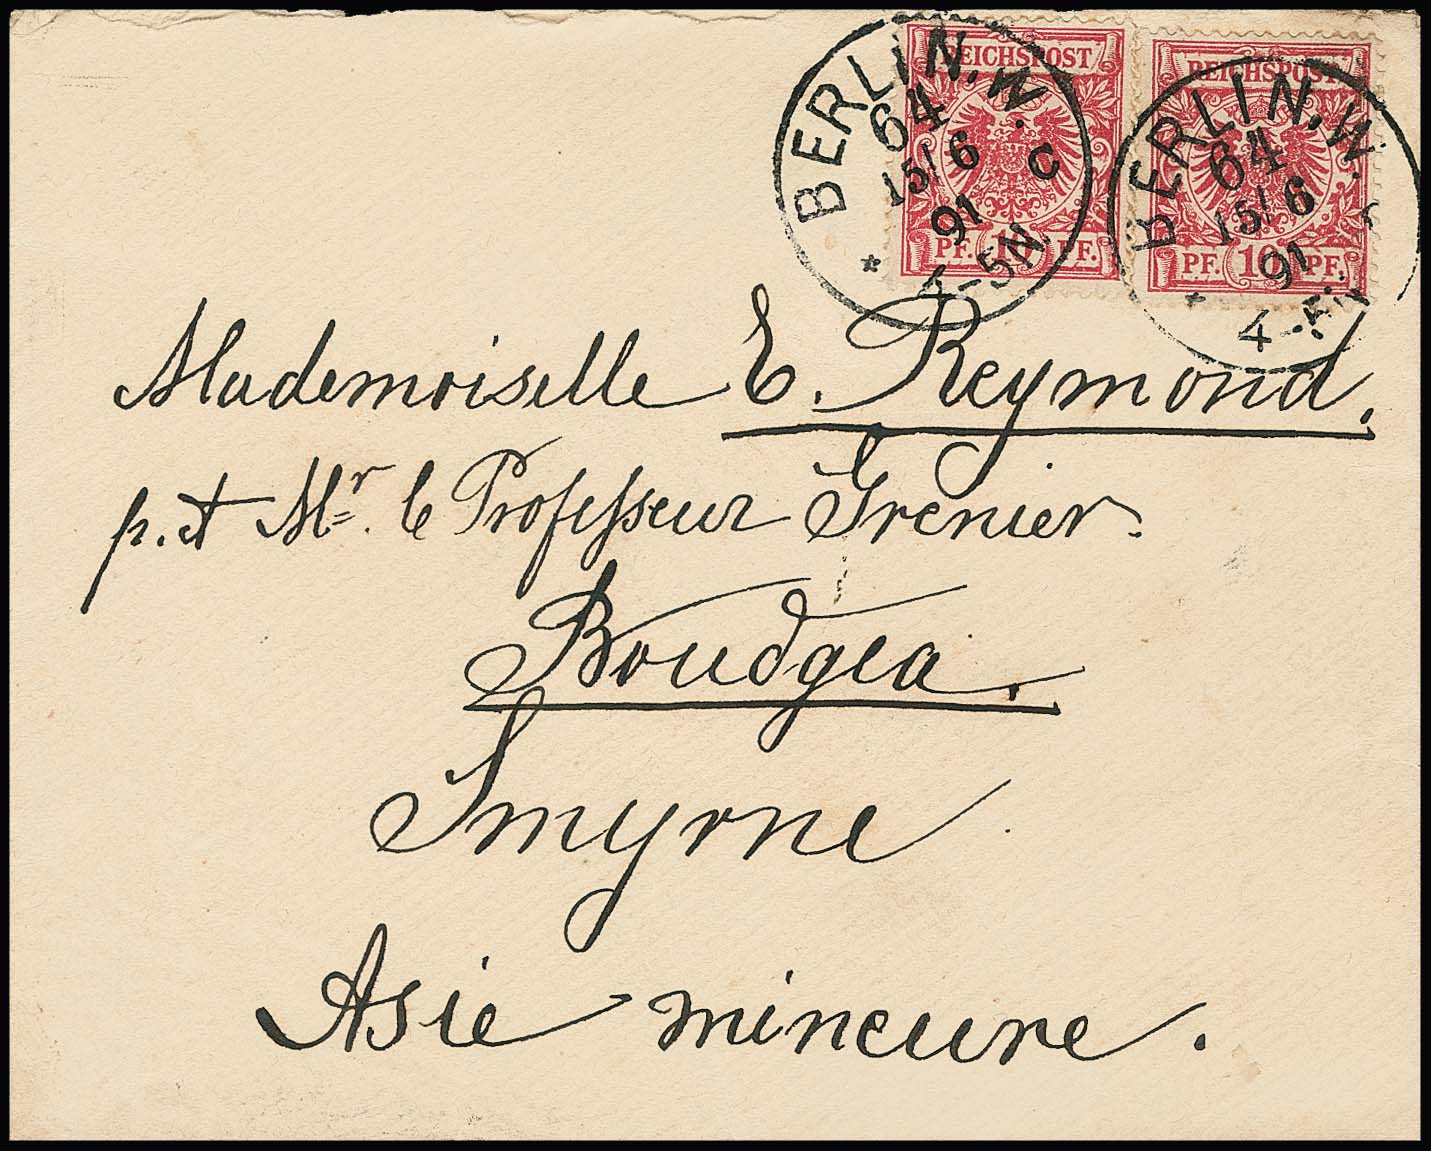 REICHSPOST
PF. 10 PF.
REICHSPOST
PF. 10 PF.
BERLIN, W.
64
15/6
91
C
4-5N
*
BERLIN, W.
64
15/6
91
4-5N
*
Mademoiselle E. Reymond.
p. Mr. le Professeur Grenier.
Boudgea.
Smyrne
Asie mineure.